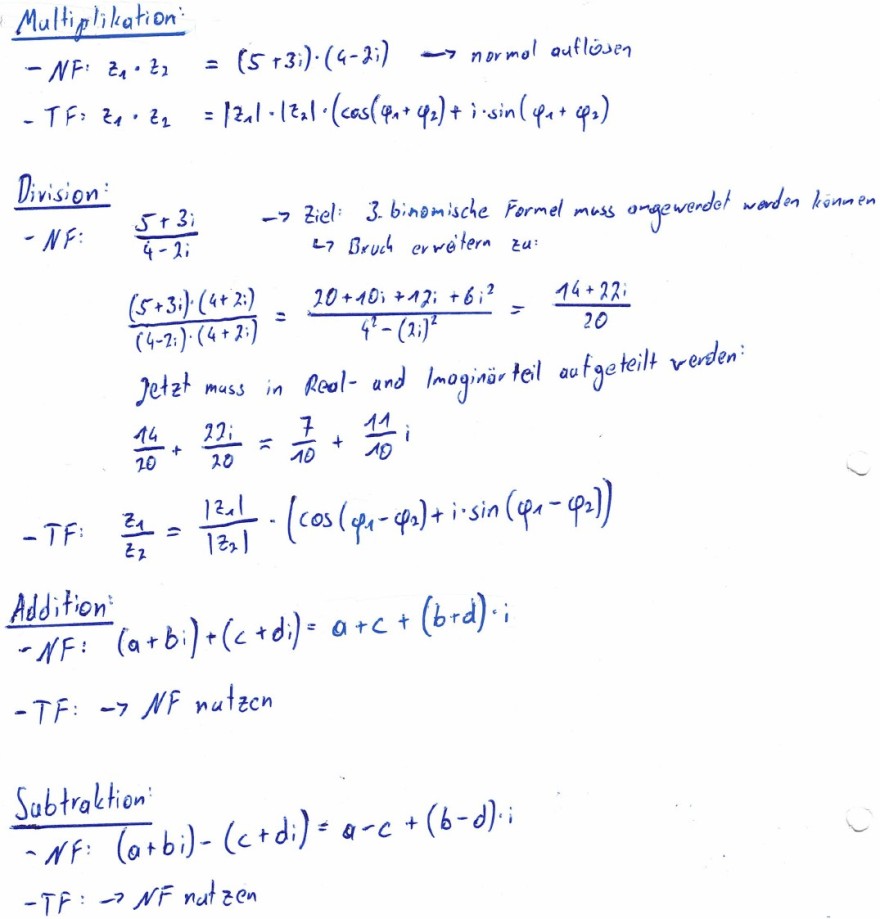 Multiplikation:
- NF: z₁ · z₂ = (5+3i)·(4-2i) → normal auflösen
- TF: z₁ · z₂ = |z₁|·|z₂|·(cos(φ₁+φ₂)+i·sin(φ₁+φ₂)
Division:
- NF: (5+3i)/(4-2i) → Ziel: 3. binomische Formel muss angewendet werden können
↳ Bruch erweitern zu:
((5+3i)·(4+2i))/((4-2i)·(4+2i)) = (20+10i+12i+6i²)/(4²-(2i)²) = (14+22i)/20
Jetzt muss in Real- und Imaginärteil aufgeteilt werden:
14/20 + 22i/20 = 7/10 + 11/10 i
- TF: z₁/z₂ = |z₁|/|z₂| · (cos(φ₁-φ₂)+i·sin(φ₁-φ₂))
Addition:
- NF: (a+bi)+(c+di)= a+c+(b+d)·i
- TF: → NF nutzen
Subtraktion:
- NF: (a+bi)-(c+di)= a-c+(b-d)·i
- TF: → NF nutzen